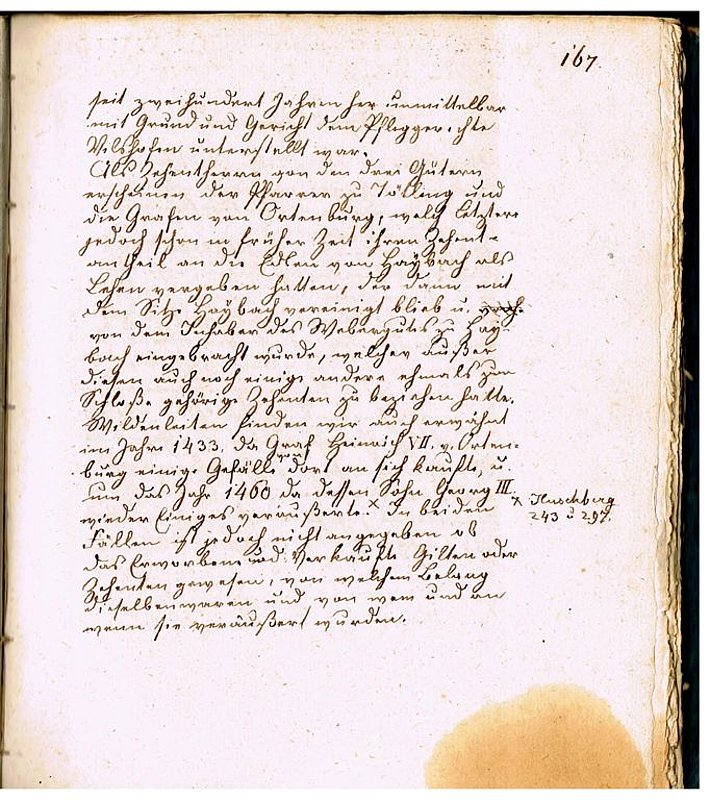 167.
seit zweihundert Jahren her unmittelbar
mit Grund und Gericht dem Pfleggerichte
Vilshofen unterstellt war.
Als Zehentherrn von den drei Gütern
erscheinen der Pfarrer zu Tötling und
die Grafen von Ortenburg, welch letztere
jedoch schon in früher Zeit ihren Zehent-
antheil an die Edlen von Haybach als
Lehen vergeben hatten, der dann mit
dem Sitze Haybach vereinigt blieb u.
von dem Inhaber des Webergutes zu Hay-
bach eingebracht wurde, welcher außer
diesen auch noch einige andere ehmals zum
Schloße gehörige Zehenten zu beziehen hatte.
Wildenleiten finden wir auch erwähnt
im Jahre 1433, da Graf Heinrich VII. v. Orten-
burg einige Gefälle dort an sich kaufte, u.
um das Jahr 1460 da dessen Sohn Georg III.
wieder Einiges veräußerte.× In beiden
Fällen ist jedoch nicht angegeben ob
das Erworbene und Verkaufte Gilten oder
Zehenten gewesen, von welchem Belang
dieselben waren und von wem und an
wenn sie veräußert wurden.
× Huschberg
243 u 297.